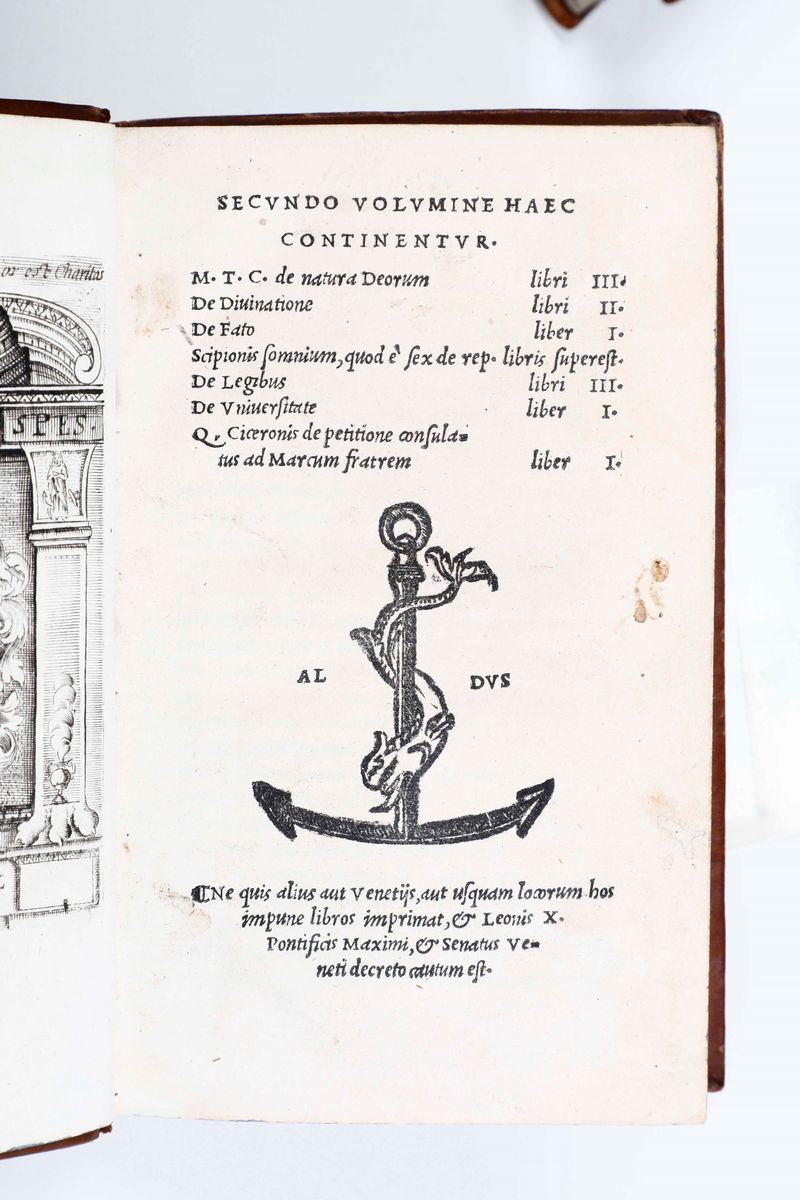 or est Charitas
SPES.
SECVNDO VOLVMINE HAEC
CONTINENTVR.
M. T. C. de natura Deorum libri III.
De Diuinatione libri II.
De Fato liber I.
Scipionis ſomnium, quod ē ſex de rep. libris ſupereſt.
De Legibus libri III.
De Vniuerſitate liber I.
Q. Ciceronis de petitione conſula-
tus ad Marcum fratrem liber I.
AL DVS
⸿Ne quis alius aut Venetijs, aut uſquam locorum hos
impune libros imprimat, & Leonis X.
Pontificis Maximi, & Senatus Ve-
neti decreto cautum eſt.